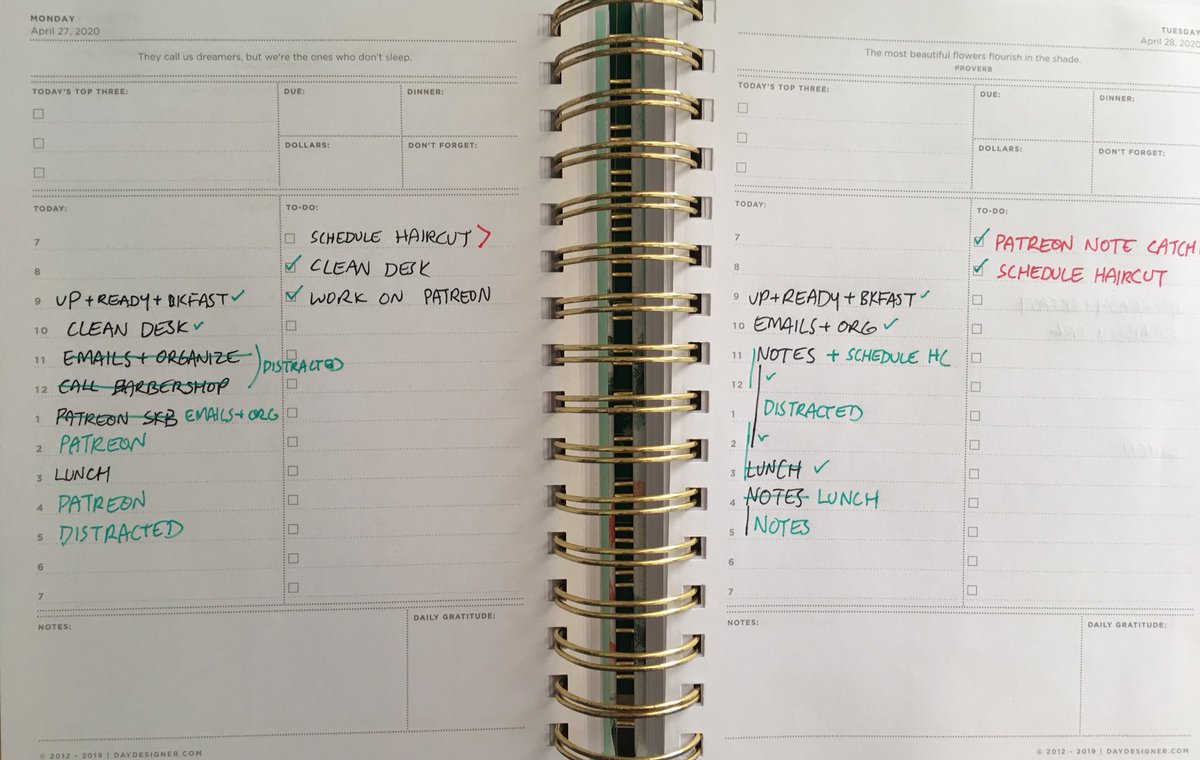 MONDAY
April 27, 2020
They call us dreamers, but we're the ones who don't sleep.
TODAY'S TOP THREE:
DUE:
DINNER:
DOLLARS:
DON'T FORGET:
TODAY:
TO-DO:
7
SCHEDULE HAIRCUT >
8
✓ CLEAN DESK
9 UP + READY + BKFAST ✓
✓ WORK ON PATREON
10 CLEAN DESK ✓
11 EMAILS + ORGANIZE
DISTRACTED
12 CALL BARBERSHOP
1 PATREON SKB EMAILS + ORG
2 PATREON
3 LUNCH
4 PATREON
5 DISTRACTED
6
7
NOTES:
DAILY GRATITUDE:
© 2012 - 2019 | DAYDESIGNER.COM
TUESDAY
April 28, 202
The most beautiful flowers flourish in the shade.
PROVERB
TODAY'S TOP THREE:
DUE:
DINNER:
DOLLARS:
DON'T FORGET:
TODAY:
TO-DO:
7
✓ PATREON NOTE CATCH
8
✓ SCHEDULE HAIRCUT
9 UP + READY + BKFAST ✓
10 EMAILS + ORG ✓
11 NOTES + SCHEDULE HC
12 ✓
1 DISTRACTED
2 ✓
3 LUNCH ✓
4 NOTES LUNCH
5 NOTES
6
7
NOTES:
DAILY GRATITUDE:
© 2012 - 2019 | DAYDESIGNER.COM